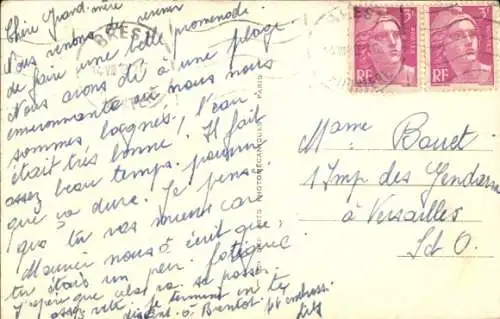 Chère Grand-mère
Nous venons de revenir
de faire une belle promenade.
Nous avons été à une plage
environnante où nous nous
sommes baignés ! L'eau
était très bonne ! Il fait
assez beau temps. pourvu
que ça dure. Je pense
que tu vas mieux car
Maurice nous a écrit que,
tu étais un peu fatiguée
J'espère que cela va se passer
assez vite. Je termine en te
disant à Bientôt
BREST
BREST
3F
3F
RF
RF
POSTES
PARIS
Mame Bouet
1 Imp des Gendarmes
à Versailles
S et O.